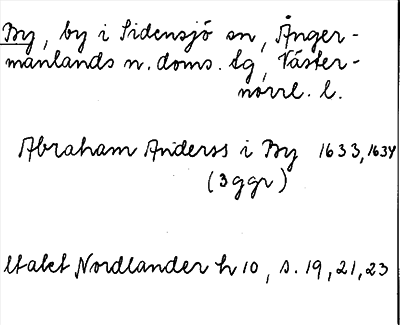 By, by i Sidensjö sn, Ånger-
manlands n. doms. tg, Väster-
norrl. l.
Abraham Anderss i By 1633, 1634
(3 ggr)
Utakt Nordlander h 10, s. 19, 21, 23